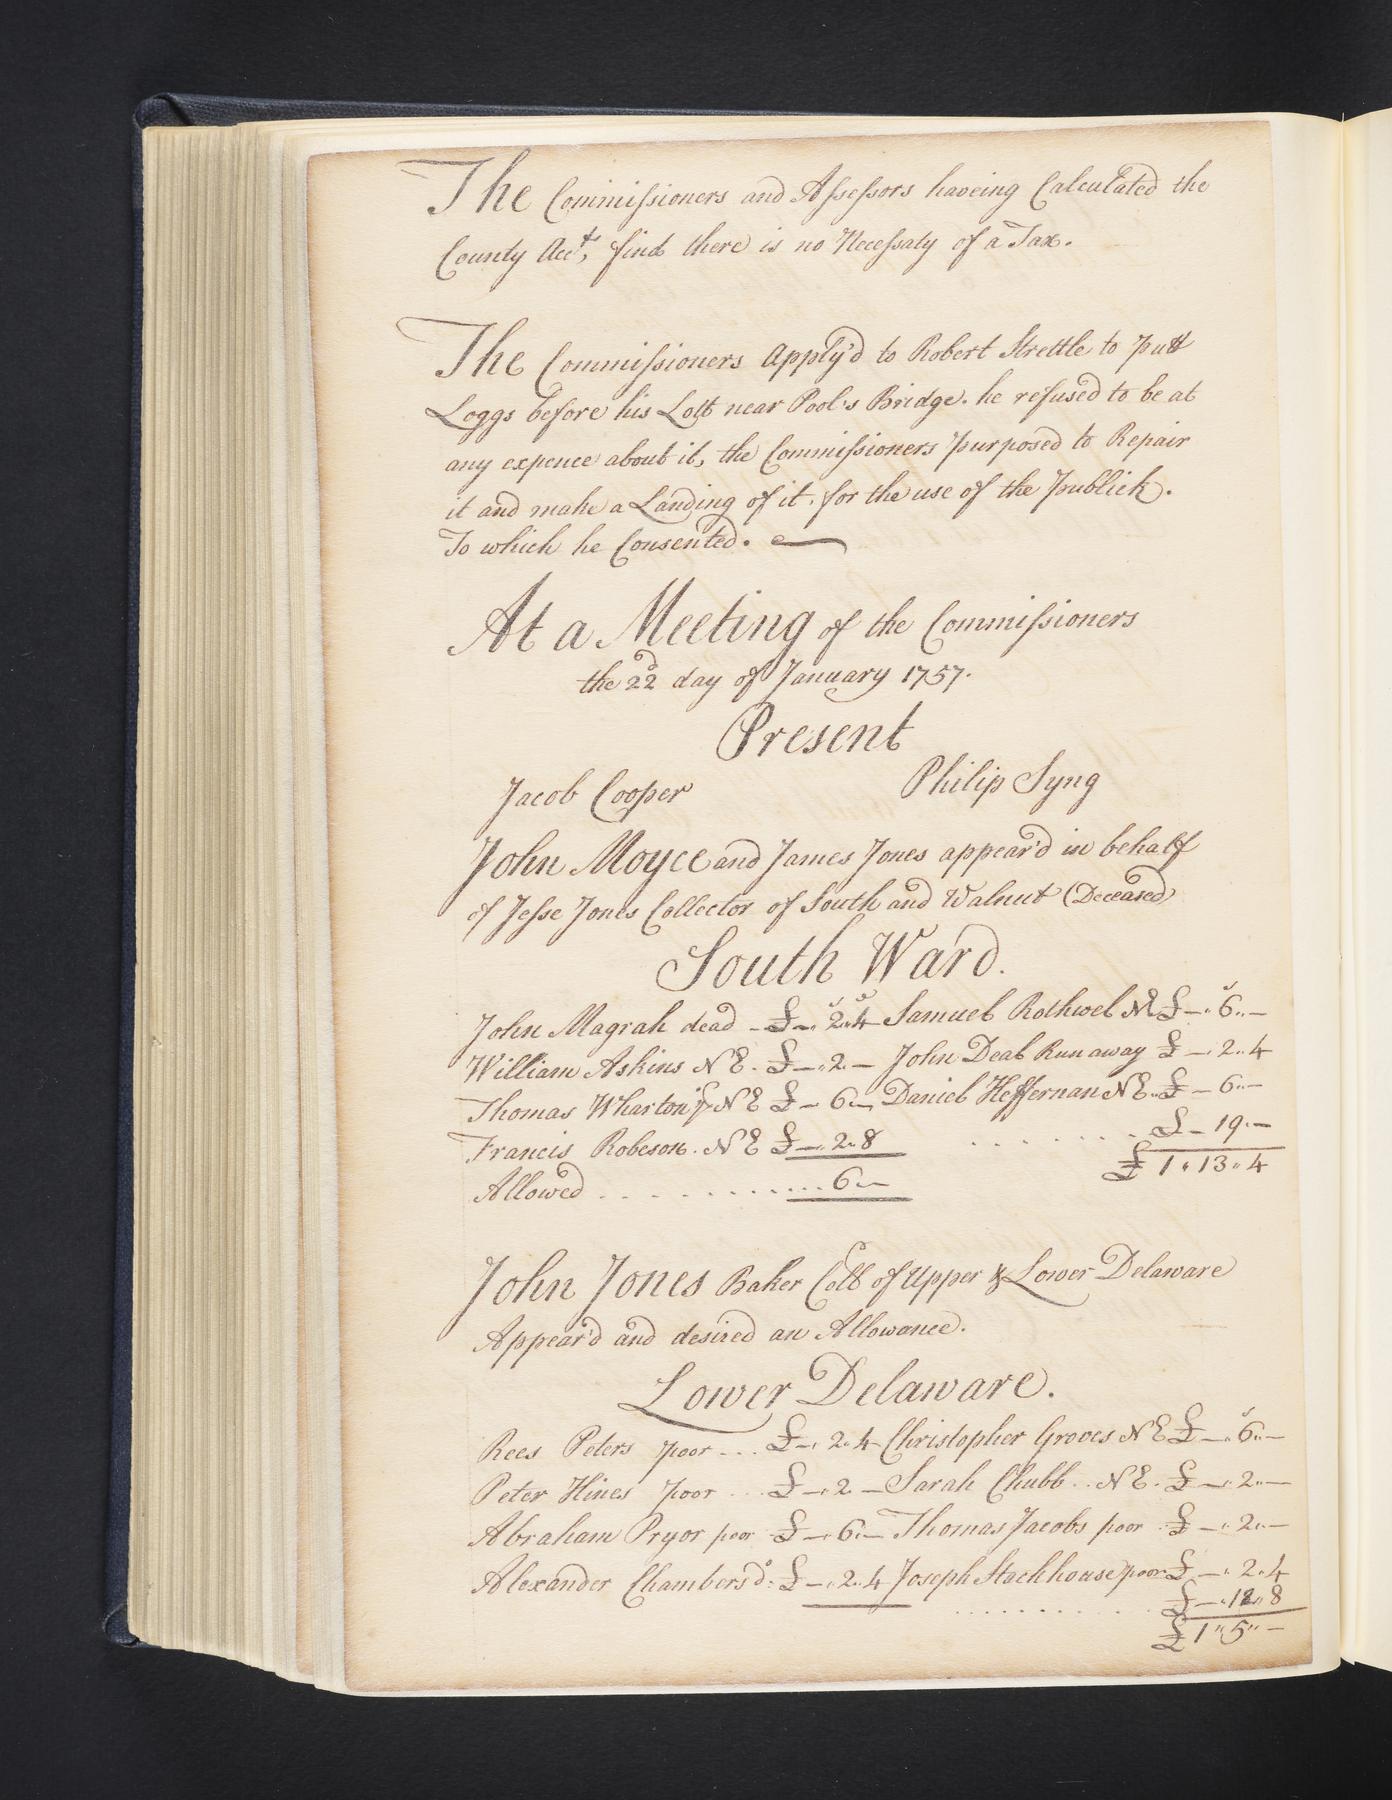 The Commissioners and Assessors haveing Calculated the
County Acct,s find there is no Necessaty of a Tax.
The Commissioners Apply'd to Robert Strettle to putt
Loggs before his Lott near Pool's Bridge. he refused to be at
any expence about it, the Commissioners purposed to Repair
it and make a Landing of it, for the use of the publick.
To which he Consented.
At a Meeting of the Commissioners
the 22d day of January 1757.
Present
Jacob Cooper Philip Syng
John Moyce and James Jones appear'd in behalf
of Jesse Jones Collector of South and Walnut (Deceased)
South Ward.
John Magrah dead - £ - ,, 2 ,, 4 Samuel Rothwel NE £ - ,, 6 ,, -
William Askins NE . £ - ,, 2 ,, - John Deal Runaway £ - ,, 2 ,, 4
Thomas Wharton NE £ - 6 ,, - Daniel Heffernan NE .. £ - 6 ,, -
Francis Robeson . NE £ - ,, 2 ,, 8 . . . . . . . £ - 19 ,, -
Allowed . . . . . . . . . . . 6 ,, - £ 1 ,, 13 ,, 4
John Jones Baker Coll of Upper & Lower Delaware
Appear'd and desired an Allowance.
Lower Delaware.
Rees Peters poor ... £ - ,, 2 ,, 4 Christopher Groves NE £ - ,, 6 ,, -
Peter Hines poor ... £ - ,, 2 - Sarah Chubb .. NE . £ - ,, 2 ,, -
Abraham Pryor poor £ - ,, 6 ,, - Thomas Jacobs poor £ - ,, 2 ,, -
Alexander Chambers do: £ - ,, 2 ,, 4 Joseph Stackhouse poor £ - ,, 2 ,, 4
. . . . . . . . . . £ - ,, 12 ,, 8
£ 1 ,, 5 ,, -